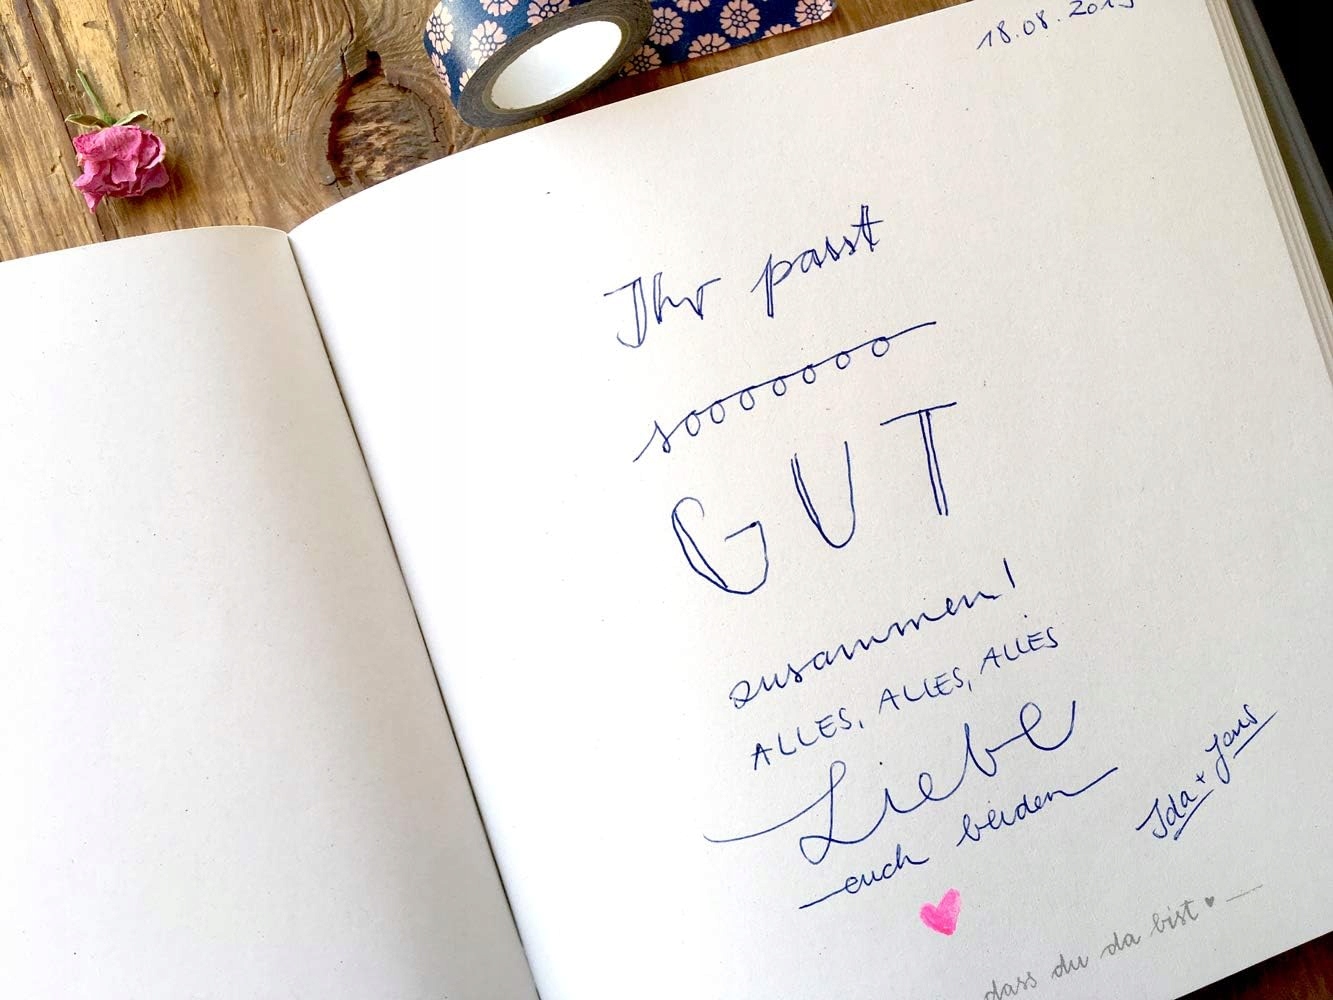 18.08.2015
Ihr passt
sooooooo
GUT
zusammen!
ALLES, ALLES, ALLES
Liebe
euch beiden
Ida + Jens
dass du da bist ♥